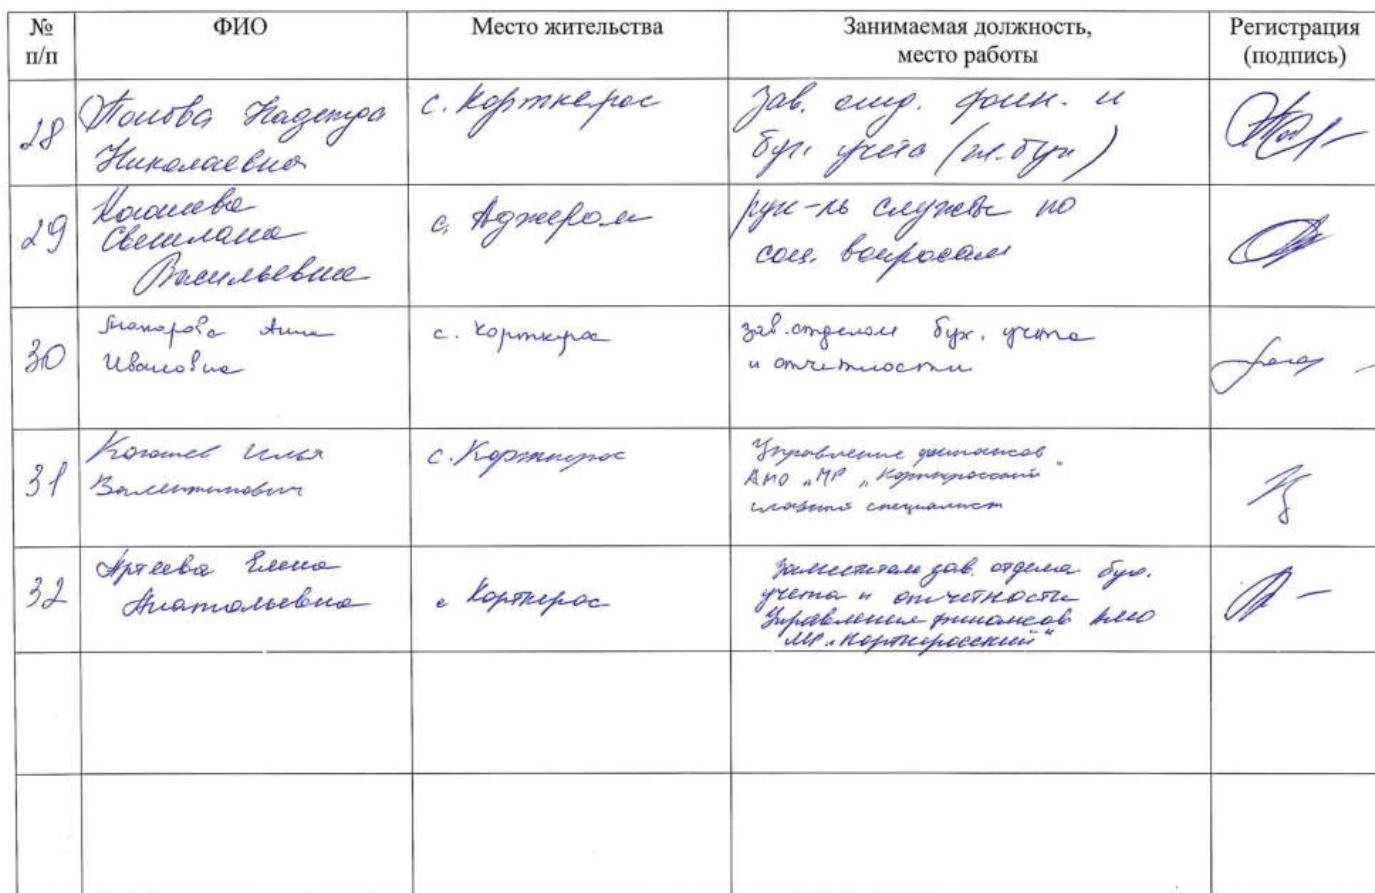 № п/п
ФИО
Место жительства
Занимаемая должность,
место работы
Регистрация
(подпись)
28
Попова Надежда
Николаевна
с. Корткерос
Зав. фин. и
бух. учета (гл. бух)
29
Светлана
Васильевна
с. Аджером
рук-ль службы по
соц. вопросам
30
Макарова Анна
Ивановна
с. Корткерос
зав. отделом бух. учета
и отчетности
31
Илья
Валентинович
с. Корткерос
Управление финансов
АМО "МР "Корткеросский"
главный специалист
32
Артеева Елена
Анатольевна
с Корткерос
Заместитель зав. отдела бух.
учета и отчетности
Управления финансов АМО
МР "Корткеросский"